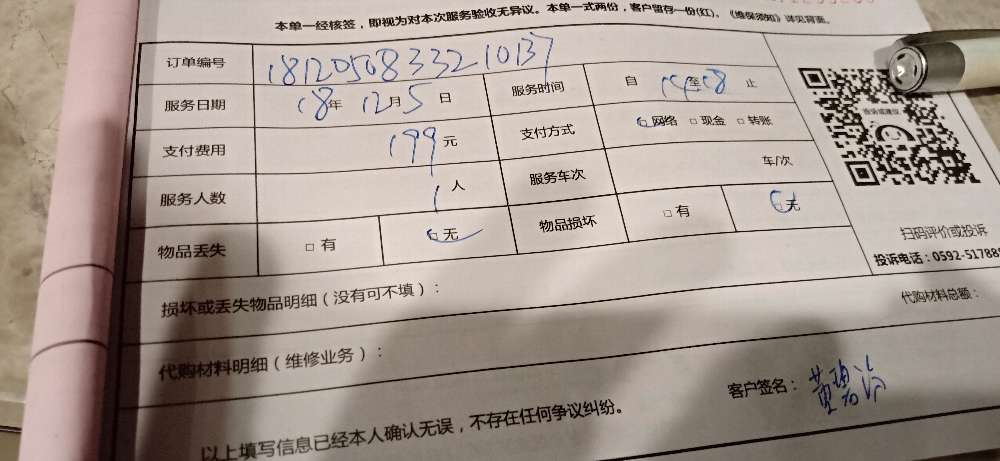 本单一经核签，即视为对本次服务验收无异议。本单一式两份，客户留存一份(红)。《维保须知》详见背面。
订单编号 181205083321037
服务日期 18年 12月 5 日 服务时间 自 14至18 止
支付费用 199元 支付方式 □网络 □现金 □转账
服务人数 1人 服务车次 车/次
物品丢失 □ 有 □ 无 物品损坏 □ 有 □ 无
投诉或建议
扫码评价或投诉
投诉电话：0592-51788
损坏或丢失物品明细（没有可不填）：
代购材料明细（维修业务）： 代购材料总额：
客户签名：黄碧
以上填写信息已经本人确认无误，不存在任何争议纠纷。